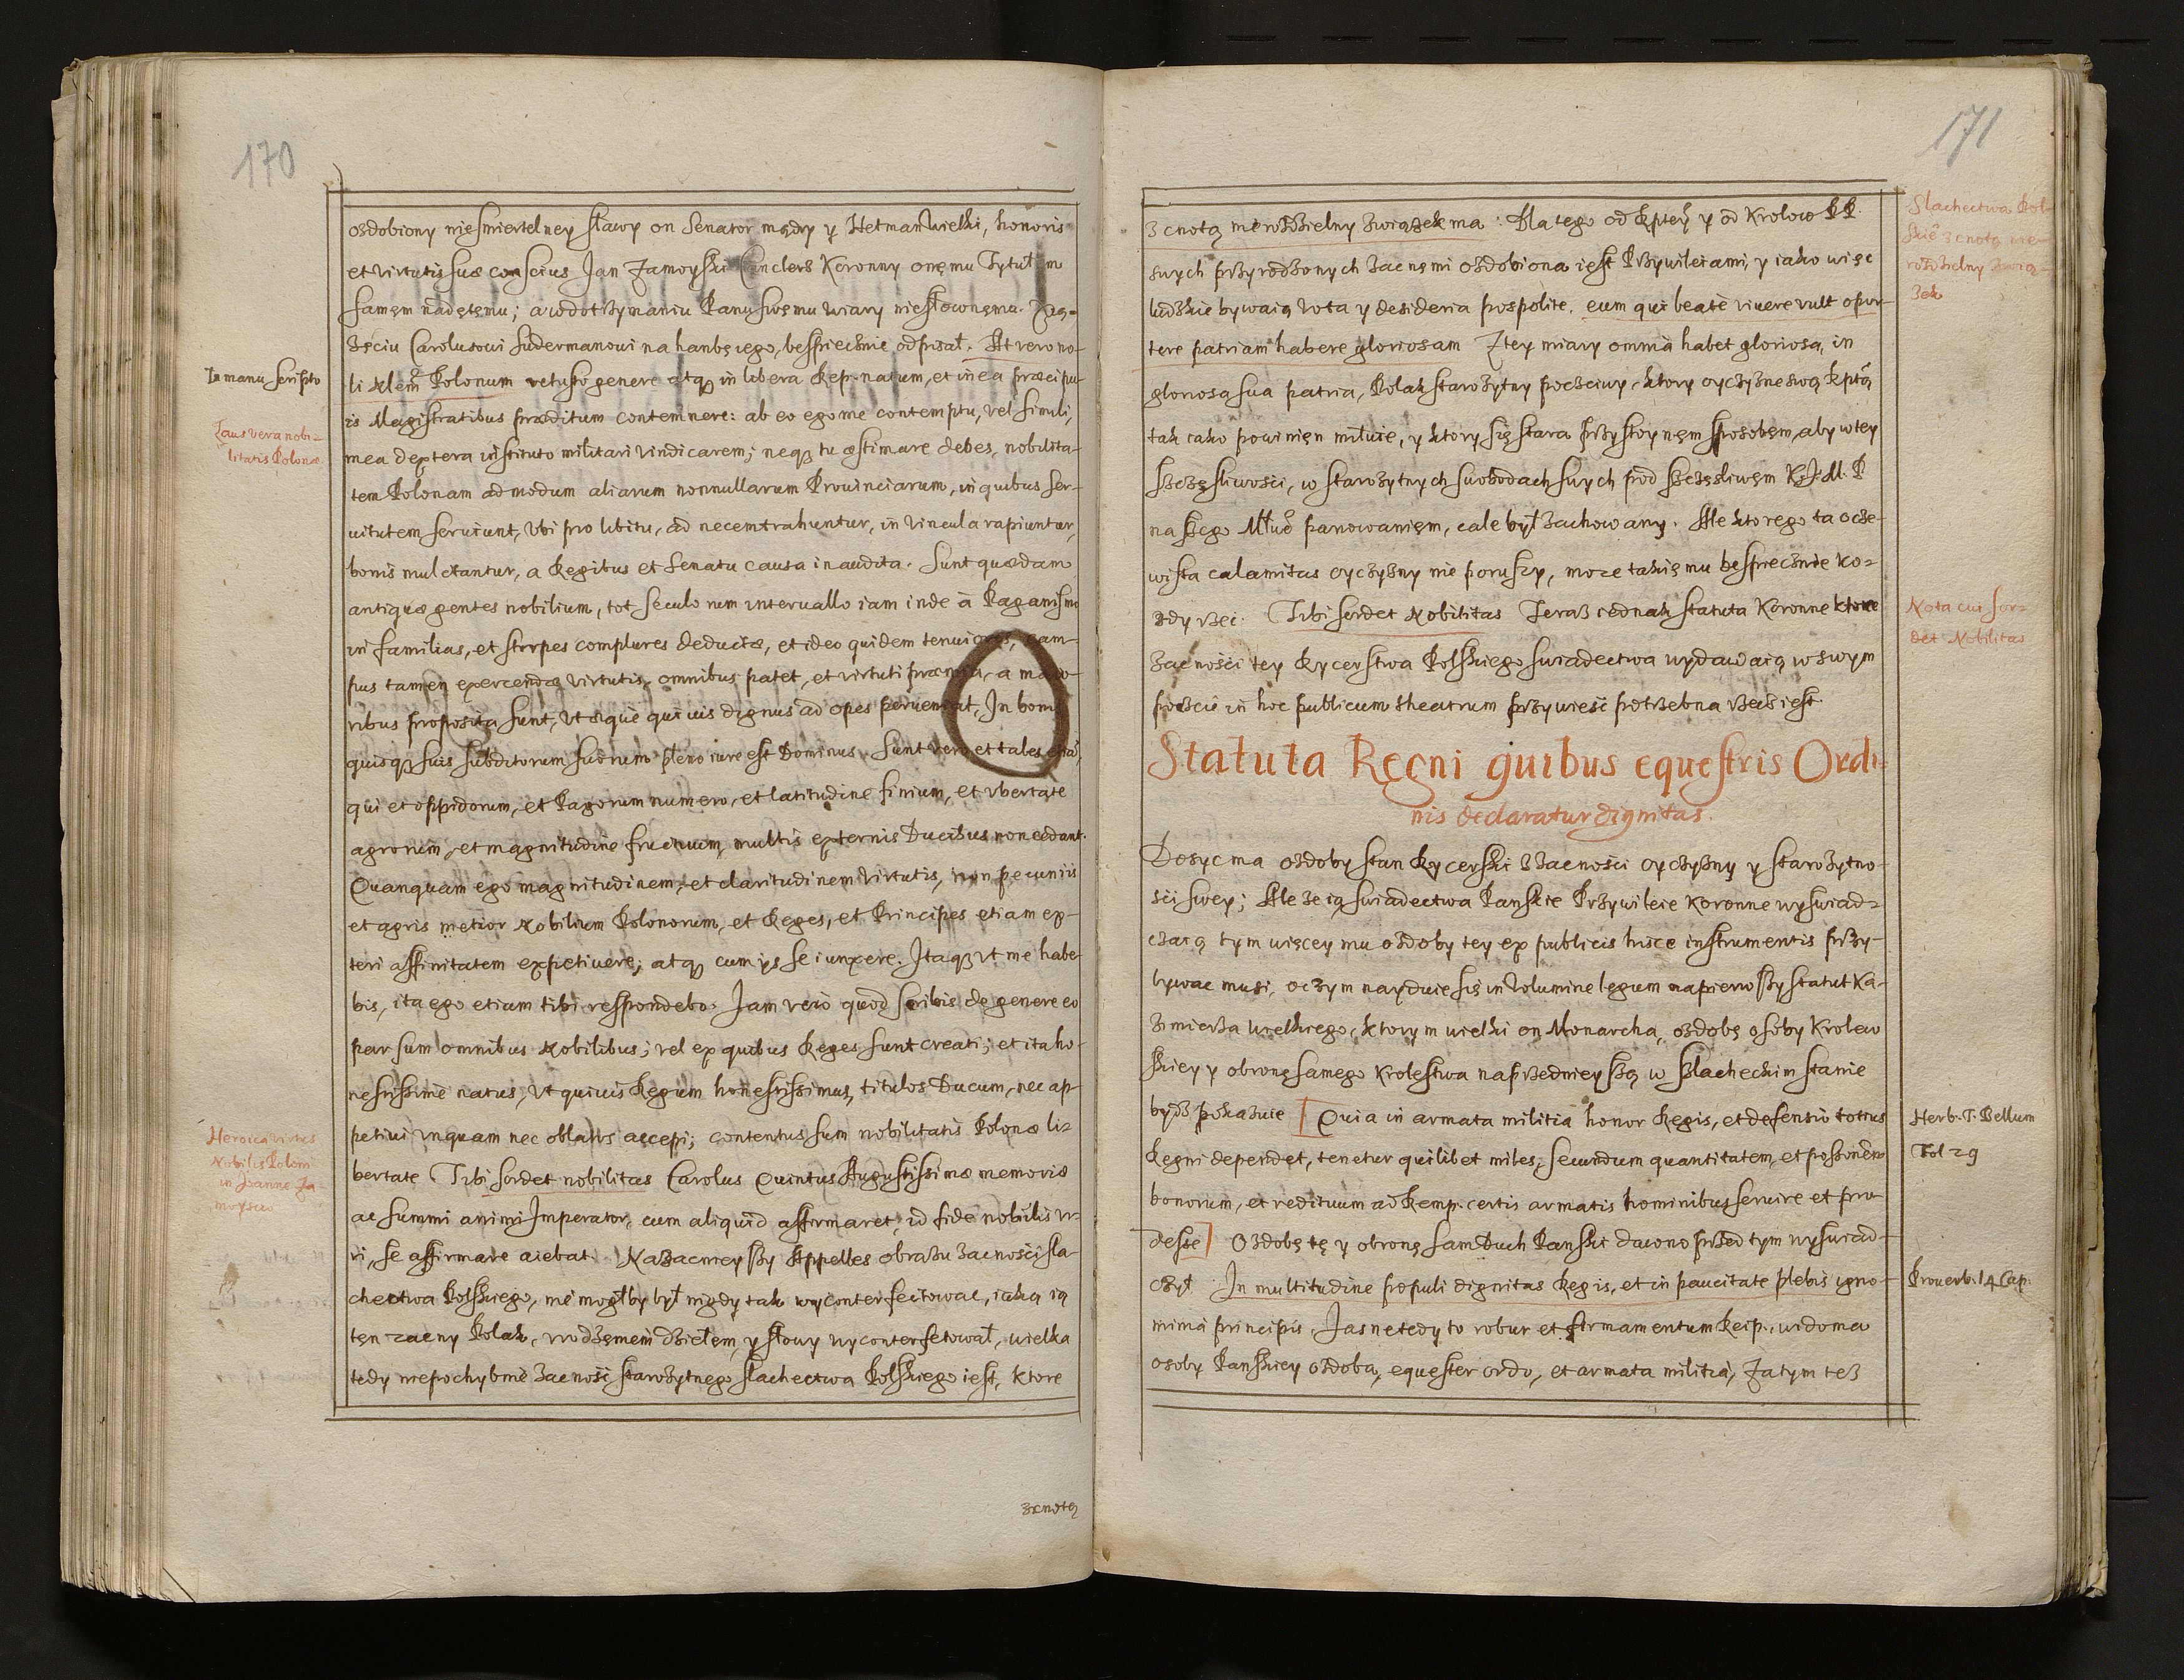 170
ozdobiony nieśmiertelney sławy on Senator mądry y Hetman Wielki, honoris
et virtutis suæ conscius Jan Zamoyski Kanclerz Koronny onęmu Tytułem
samęm nadętęmu; a w dotrzymaniu Panu swęmu wiary niesłownęmu.
żęciu Carolusowi Sudermanowi na hańbę iego, bespiecznie odpisał. At vero no-
In manu scripto
li Polonum vetusto genere atq in libera Rep. natum, et in ea præcipu-
is Magistratibus præditum contemnere: ab eo ego me contemptu, vel simili,
Laus vera nobi-
litatis Polonæ
mea dextera instituto militari vindicarem; neq tu æstimare debes, nobilita-
tem Polonam ad modum aliarum nonnullarum Prouinciarum, in quibus ser-
uitutem seruiunt, Vbi pro libitu, ad necem trahuntur, in vincula rapiuntur,
bonis mulctantur, a Regibus et Senatu causa inaudita. Sunt quædam
antiquæ gentes nobilium, tot seculorum interuallo iam inde à Paganismo
in familias, et stirpes complures deductæ, et ideo quidem tenuiores, cam-
pus tamen exercendæ virtutis, omnibus patet, et virtuti præmia, a maio-
ribus proposita sunt, Vt æque quiuis dignus ad opes perueniat, In bonis
quisq suis subditorum suorum pleno iure est Dominus. Sunt vero et tales etiā,
qui et oppidorum, et Pagorum numero, et latitudine finium, et vbertate
agrorum, et magnitudine fructuum, multis externis Ducibus non cedant.
Quanquam ego magnitudinem, et claritudinem virtutis, non pecuniis
et agris metior Nobilium Polonorum, et Reges, et Principes etiam ex-
teri affinitatem expetiuere, atq cum ijs se iunxere. Itaq vt me habe-
bis, ita ego etiam tibi respondebo. Iam verò quod scribis de genere eo
par sum omnibus Nobilibus; vel ex quibus Reges sunt creati; et ita ho-
nestissimè natus, Vt quiuis Regum honestissimus, titulos Ducum, nec ap-
Heroica virtus
Nobilis Poloni
in Joanne Za-
moyscio
petiui vnquam nec oblatos accepi; contentus sum nobilitatis Polonæ li-
bertate Tibi sordet nobilitas Carolus Quintus Augustissimæ memoriæ
ac summi animi Imperator, cum aliquid affirmaret, id fide nobilis vi-
ri, se affirmare aiebat. Nazacnieyszy Appelles obrazu zacności sla-
chectwa Polskiego, nie mogłby był nigdy tak wyconterfektowac, iaką ią
tęn zacny Polak, rodzęmem dziełem, y słowy wyconterfetował, wielka
tedy niepochybnie zacność starożytnego slachectwa Polskiego iest, ktore
z cnotą
171
z cnotą nierozdzielny związek ma. Dla tego od y od Krolow PP.
Slachectwa Pol-
skie z cnotą nie-
rozdzielny zwią-
zek
swych przyrodzonych zacnęmi ozdobiona iest Przywileiami, y iako więc
ludzkie bywaią vota y desideria pospolite. eum qui beatè viuere vult opor-
tere patriam habere gloriosam Z tey miary omnia habet gloriosa, in
gloriosa sua patria, Polak starożytny pocsciwy, ktory oyczyznę swą
tak iako powinięn miłuie, y ktory się stara przystoynęm sposobęm, aby w tey
szczęsliwości, w starożytnych swobodach swych pod szczęsliwęm K. J. M. P
naszego panowanięm, cale był zachowany. Ale ktorego ta ocze-
wista calamitas oyczyzny nie poruszy, może takięmu bespiecznie ko-
żdy rzec. Tibi sordet Nobilitas Teraz iednak statuta Koronne ktore
Nota cui sor-
det Nobilitas
zacności tey Rycerstwa Polskiego swiadectwa wydawaią w swym
poczcie in hoc publicum theatrum przywieść potrzebna rzecz iest
Statuta Regni quibus equestris Ordi-
nis declaratur dignitas.
Dosyc ma ozdoby stan Rycerski z zacności oyczyzny y starożytno-
ści swey; Ale że ią swiadectwa Panskie Przywileie Koronne wyswiad-
czaią tym więcey mu ozdoby tey ex publicis hisce instrumentis przy-
bywac musi, o czym nayduie się in Volumine legum napierwszy statut Ka-
zimierza wielkiego, ktorym wielki on Monarcha, ozdobę osoby Krolew
skiey y obronę samego Krolestwa naprzednieyszą w Slacheckim stanie
bydz pokazuie Quia in armata militia honor Regis, et defensio totius
Herb. T. Bellum
Fol 29
Regni dependet, tenetur quilibet miles, secundum quantitatem, et possionem
bonorum, et redituum ad Remp. certis armatis hominibus seruire et pro-
desse Ozdobę tę y obronę sam Duch Panski dawno przed tym wyswiad-
czył In multitudine populi dignitas Regis, et in paucitate plebis igno-
Prouerb. 14 Cap.
minia principis. Jasne tedy to robur et firmamentum Reip., widoma
osoby Panskiey ozdoba, equester ordo, et armata militia, Zatym też